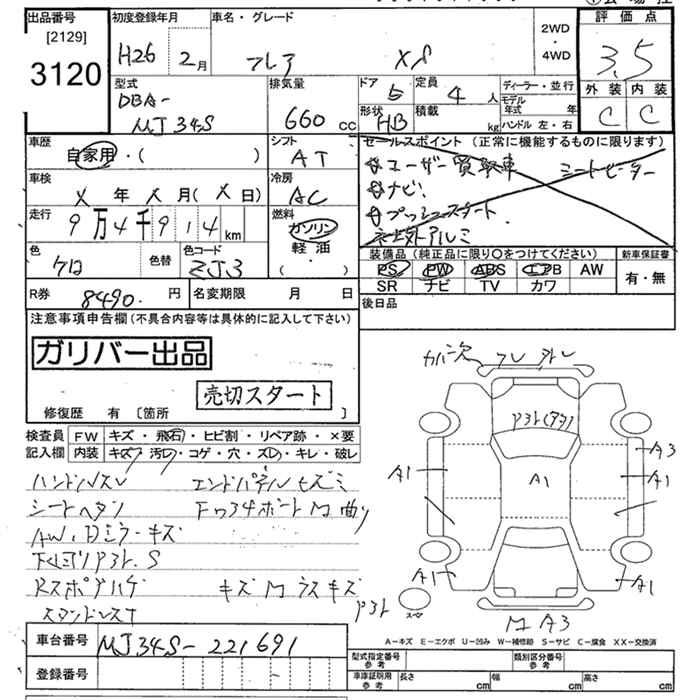 出品番号
[2129]
3120
初度登録年月
H26年 2月
車名・グレード
フレア XS
2WD
・
4WD
評価点
3.5
外装 内装
C C
型式
DBA-
MJ34S
排気量
660 cc
ドア 5
定員 4 人
形状 HB
積載 kg
ディーラー・並行
モデル年式 年
ハンドル 左・右
車歴
自家用・( )
シフト
AT
車検
X 年 X 月 ( X 日)
冷房
AC
走行
9万4千914 km
燃料
ガソリン
軽油
・( )
色
クロ
色替
色コード
ZJ3
R券 8490. 円
名変期限 月 日
セールスポイント (正常に機能するものに限ります)
ユーザー買取車 シートヒーター
ナビ.
プッシュスタート.
社外アルミ
装備品 (純正品に限り○をつけてください)
PS PW ABS エアB AW
SR ナビ TV カワ
新車保証書
有・無
後日品
注意事項申告欄 (不具合内容等は具体的に記入して下さい)
ガリバー出品
売切スタート
修復歴 有 [箇所 ]
検査員記入欄
FW キズ・飛石・ヒビ割・リペア跡・×要
内装 キズ・汚レ・コゲ・穴・スレ・キレ・破レ
ハンドルスレ エンドパネルキズミ
シートヘタリ
AW、Dミラーキズ
キズM
車台番号 MJ34S-221691
登録番号
A1
A1
A3
A1
A1
A1
M A3
A-キズ E-エクボ U-凹み W-補修跡 S-サビ C-腐食 XX-交換済
型式指定番号 参考
類別区分番号 参考
車庫証明用 参考
長さ cm
幅 cm
高さ cm